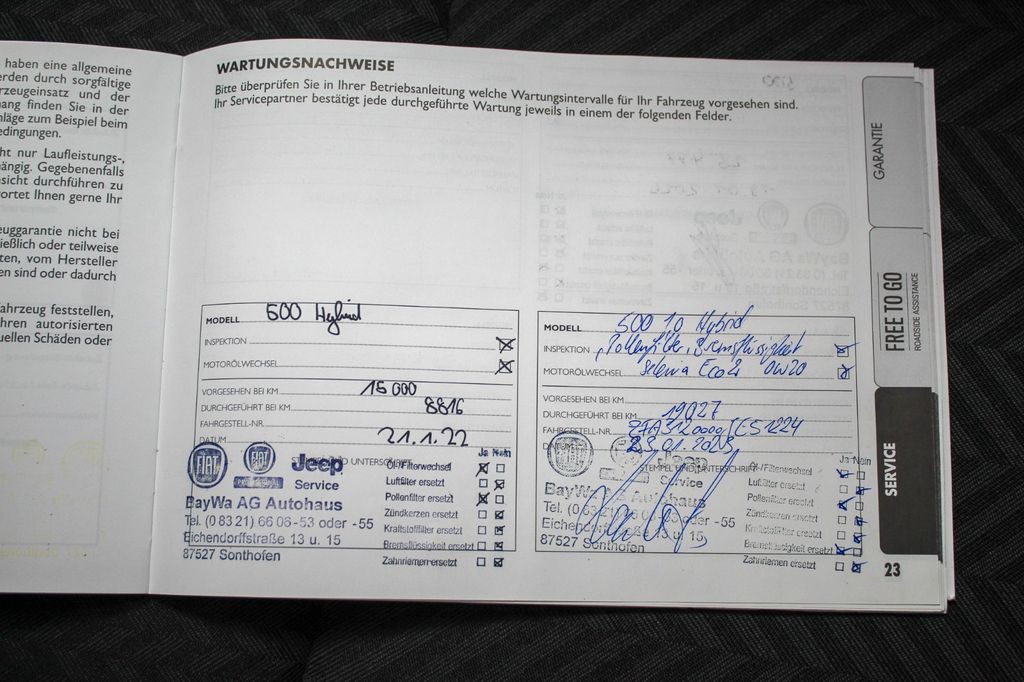 haben eine allgemeine
rden durch sorgfältige
rzeugeinsatz und der
ang finden Sie in der
läge zum Beispiel beim
edingungen.
ht nur Laufleistungs-,
ängig. Gegebenenfalls
sicht durchführen zu
ortet Ihnen gerne Ihr
euggarantie nicht bei
ießlich oder teilweise
ten, vom Hersteller
en sind oder dadurch
ahrzeug feststellen,
hren autorisierten
uellen Schäden oder
WARTUNGSNACHWEISE
Bitte überprüfen Sie in Ihrer Betriebsanleitung welche Wartungsintervalle für Ihr Fahrzeug vorgesehen sind.
Ihr Servicepartner bestätigt jede durchgeführte Wartung jeweils in einem der folgenden Felder.
MODELL 500 Hybrid
INSPEKTION
MOTORÖLWECHSEL
VORGESEHEN BEI KM 15000
DURCHGEFÜHRT BEI KM 8816
FAHRGESTELL-NR.
DATUM 21.1.22
STEMPEL UND UNTERSCHRIFT
FIAT
Jeep
Service
BayWa AG Autohaus
Tel. (0 83 21) 66 06 -53 oder -55
Eichendorffstraße 13 u. 15
87527 Sonthofen
Ja Nein
Öl-/Filterwechsel
Luftfilter ersetzt
Pollenfilter ersetzt
Zündkerzen ersetzt
Kraftstoffilter ersetzt
Bremsflüssigkeit ersetzt
Zahnriemen ersetzt
MODELL 500 1.0 Hybrid
INSPEKTION Pollenfilter, Bremsflüssigkeit
MOTORÖLWECHSEL Selenia Eco2 0W20
VORGESEHEN BEI KM
DURCHGEFÜHRT BEI KM 19027
FAHRGESTELL-NR.
DATUM 23.01.2023
STEMPEL UND UNTERSCHRIFT
Service
BayWa AG Autohaus
Tel. (0 83 21) -53 oder -55
Eichendorffstraße 13 u. 15
87527 Sonthofen
Ja Nein
Öl-/Filterwechsel
Luftfilter ersetzt
Pollenfilter ersetzt
Zündkerzen ersetzt
Kraftstoffilter ersetzt
Bremsflüssigkeit ersetzt
Zahnriemen ersetzt
GARANTIE
FREE TO GO
ROADSIDE ASSISTANCE
SERVICE
23